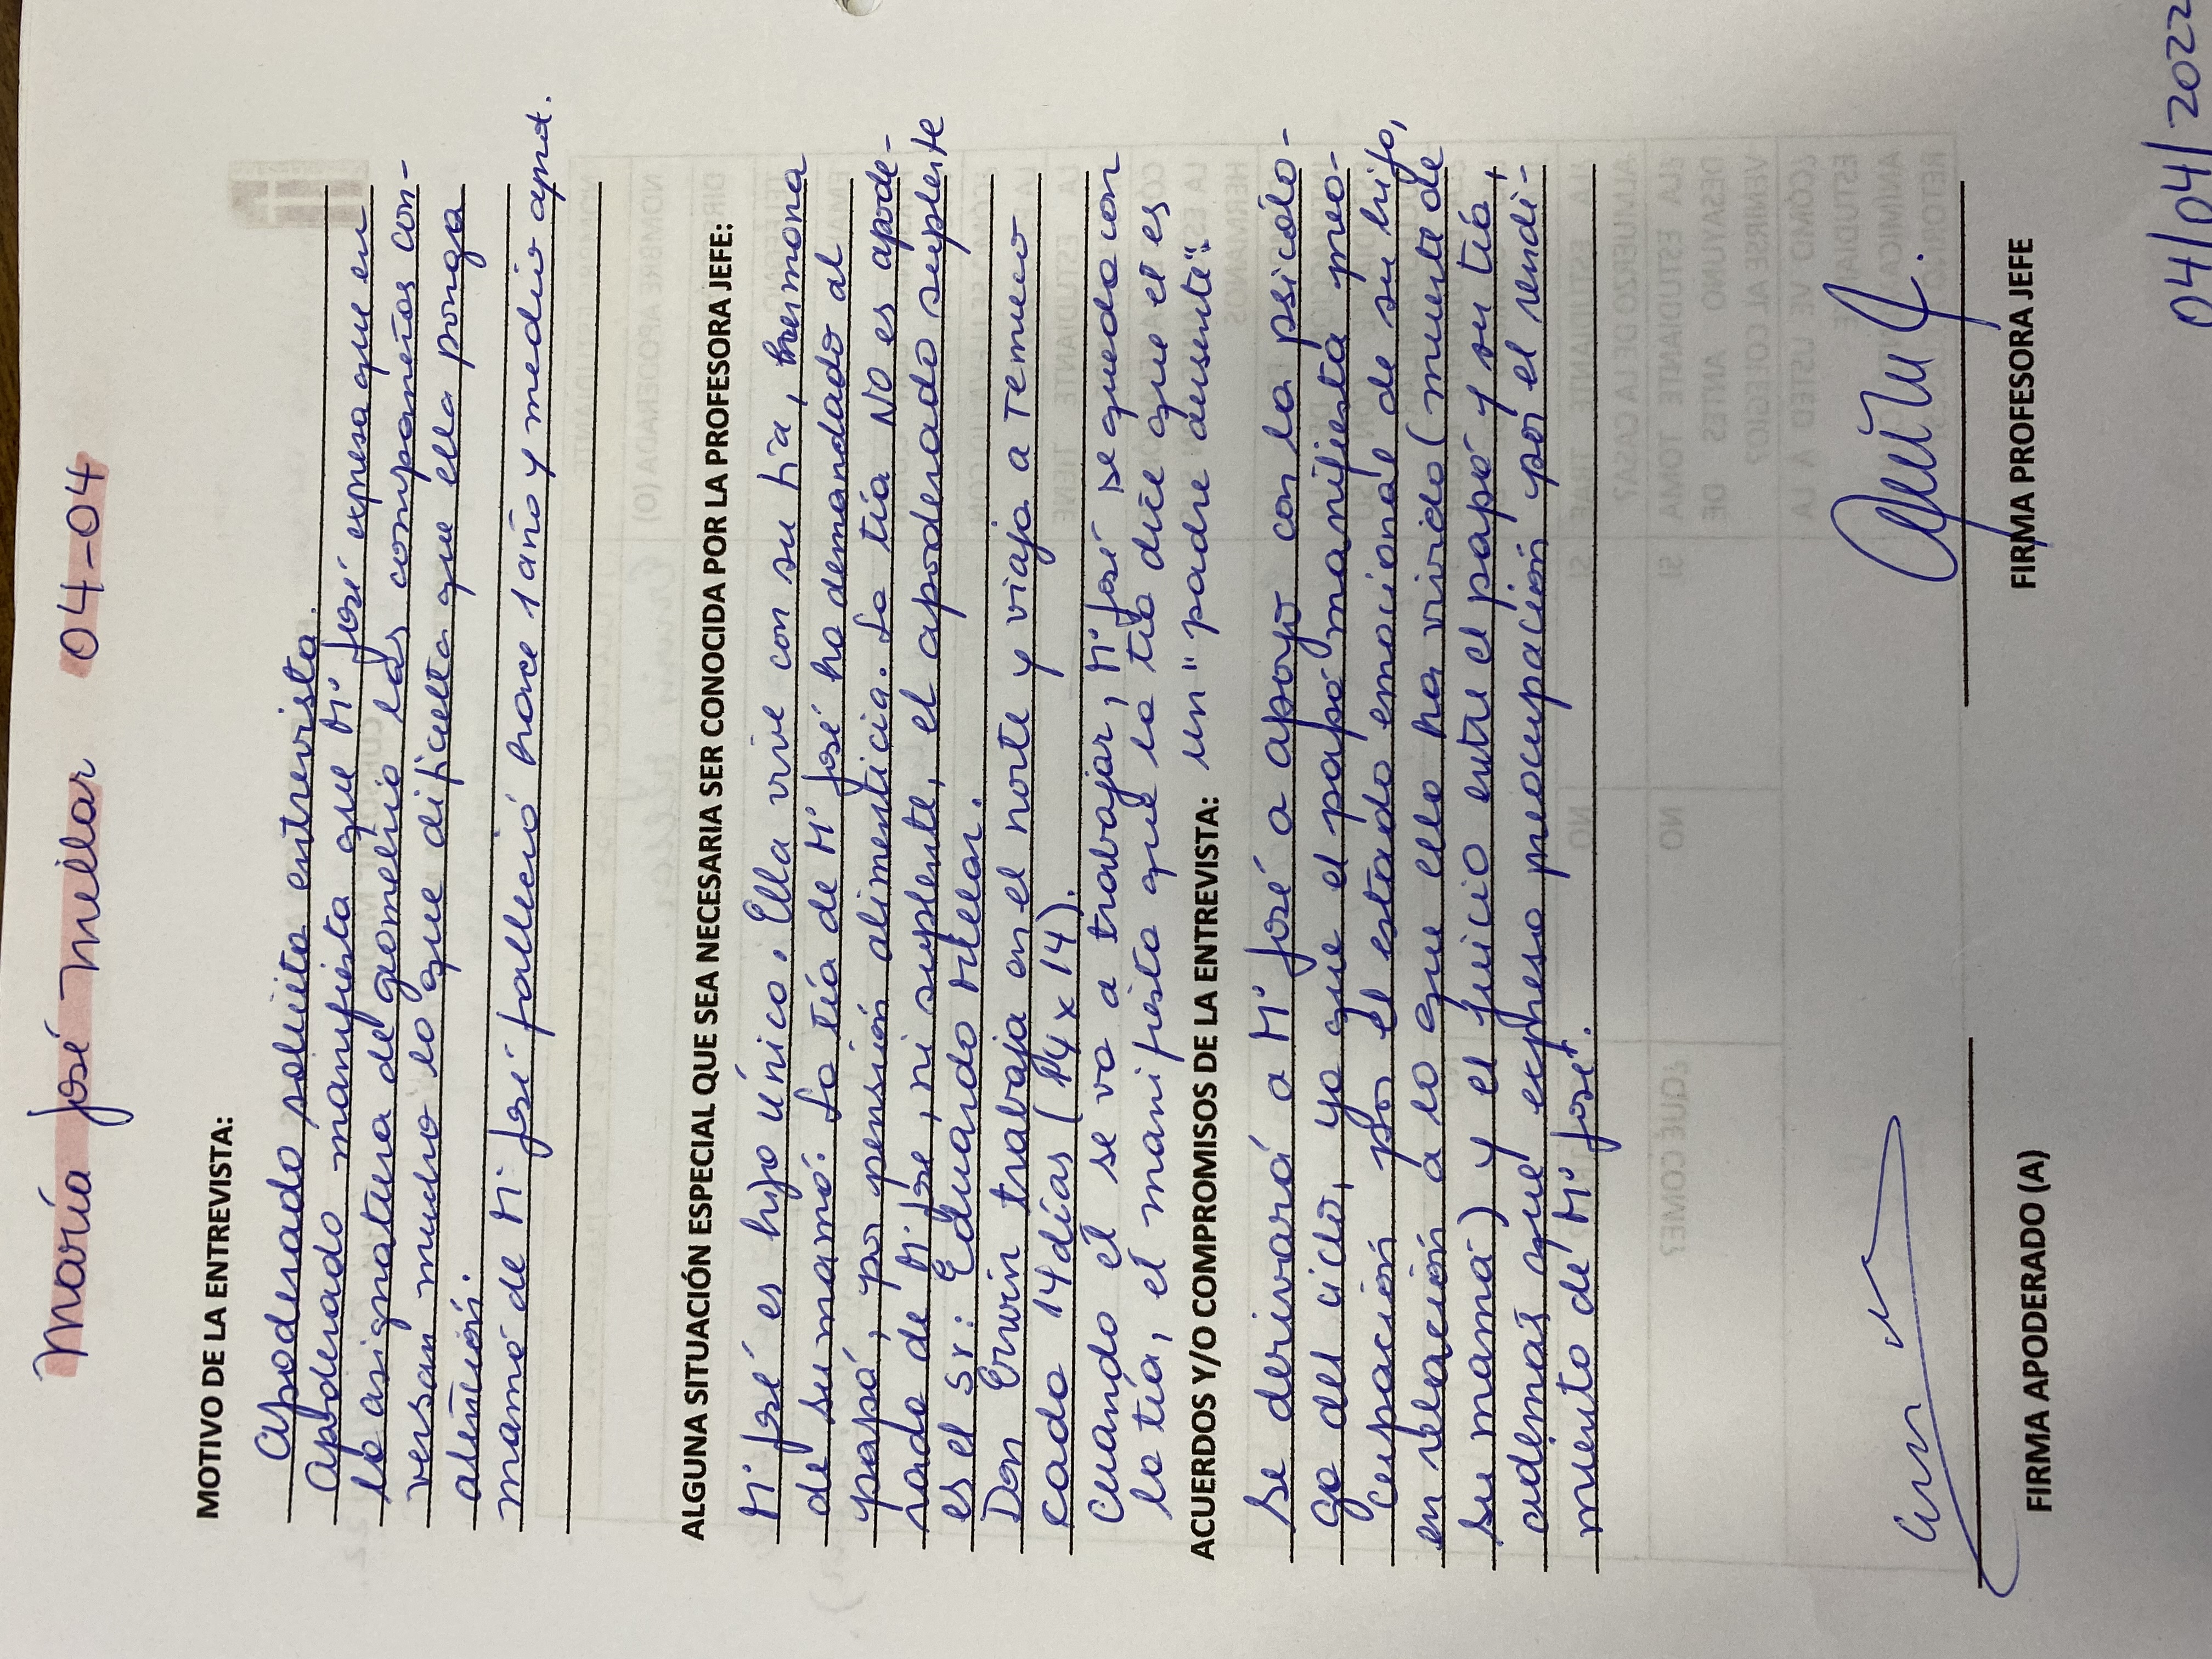 María José Millar 04-04
MOTIVO DE LA ENTREVISTA:
Apoderado solicita entrevista.
Apoderado manifiesta que Mª José expresa que en
la asignatura de geometría las compañeras con-
versan mucho lo que dificulta que ella ponga
atención.
mamá de Mª José falleció hace 1 año y medio aprox.
ALGUNA SITUACIÓN ESPECIAL QUE SEA NECESARIA SER CONOCIDA POR LA PROFESORA JEFE:
Mª José es hija única. Ella vive con su tía, hermana
de su mamá. La tía de Mª José ha demandado al
papá, por pensión alimenticia. La tía NO es apode-
rada de Mª José, ni suplente, el apoderado suplente
es el Sr: Eduardo Millar.
Don Erwin trabaja en el norte y viaja a Temuco
cada 14 días (14 x 14).
Cuando él se va a trabajar, Mª José se queda con
la tía, él manifiesta que la tía dice que él es
un "padre ausente".
ACUERDOS Y/O COMPROMISOS DE LA ENTREVISTA:
Se derivará a Mª José a apoyo con la psicólo-
ga del ciclo, ya que el papá manifiesta preo-
cupación por el estado emocional de su hija,
en relación a lo que ella ha vivido (muerte de
su mamá) y el juicio entre el papá y su tía,
además que expresa preocupación por el rendi-
miento de Mª José.
FIRMA APODERADO (A)
FIRMA PROFESORA JEFE
04/04/2022